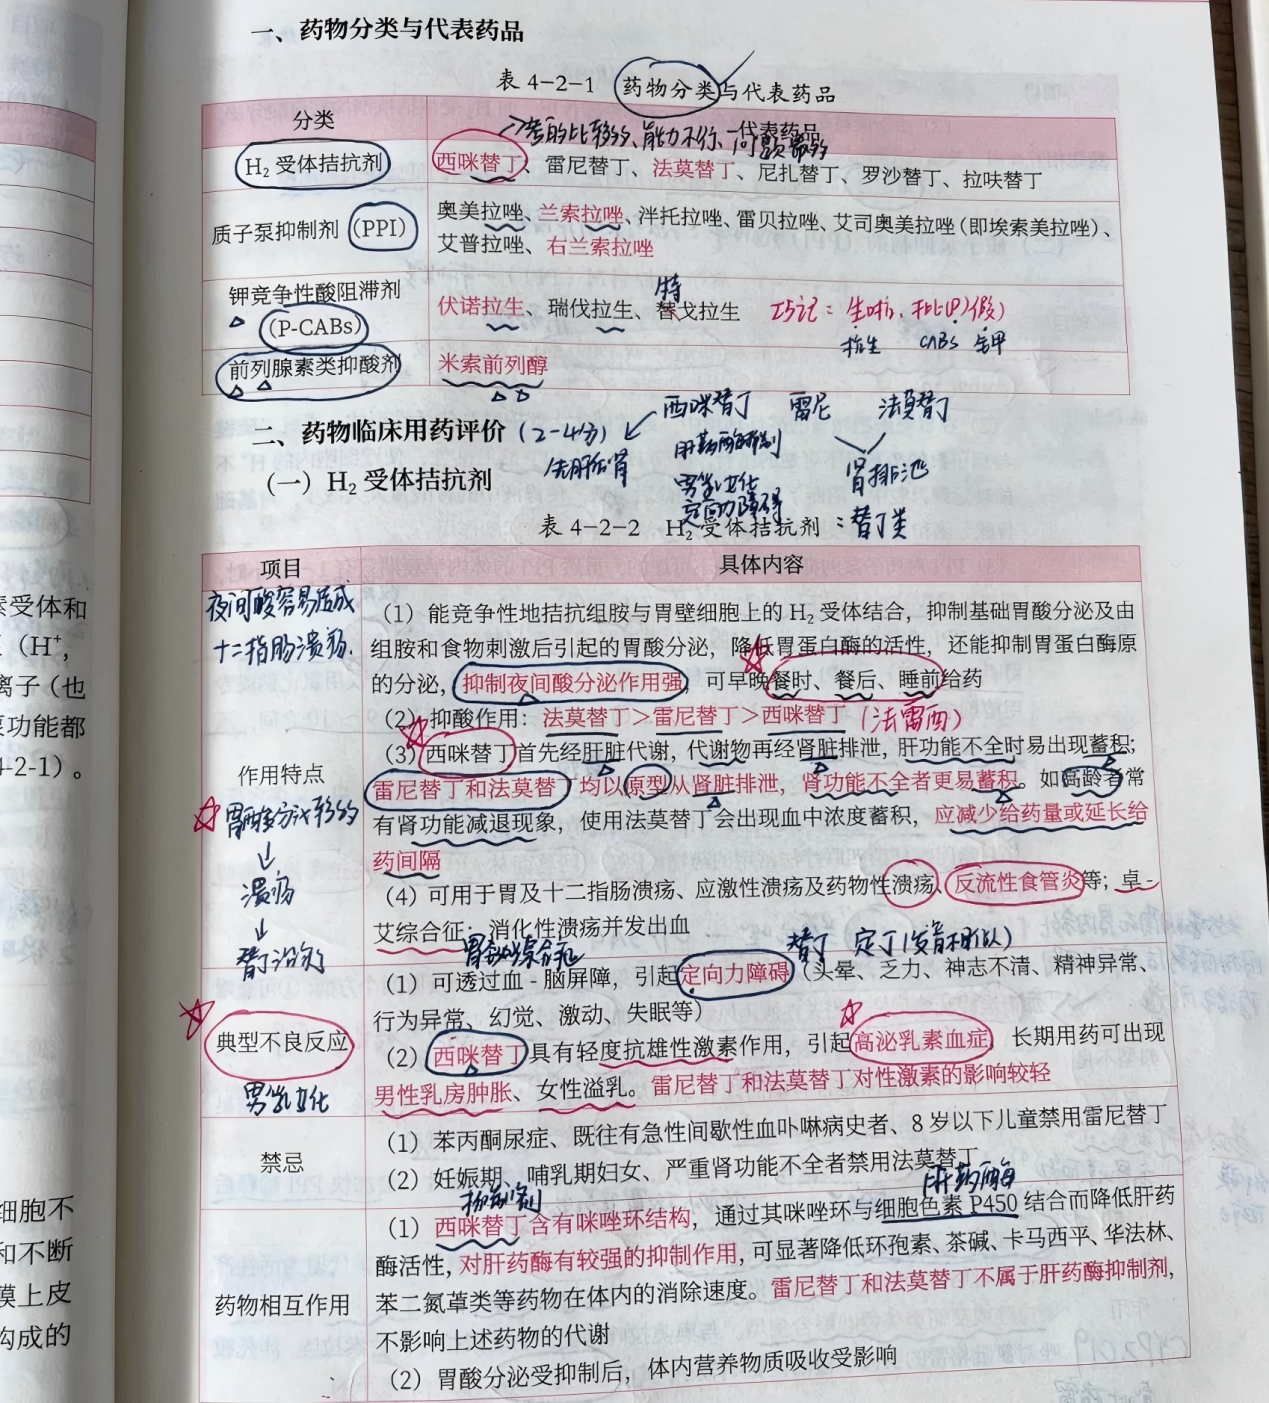 一、药物分类与代表药品
表 4-2-1 药物分类与代表药品
分类
代表药品
→考的比较多、能力不行、问题最多
H₂ 受体拮抗剂
西咪替丁、雷尼替丁、法莫替丁、尼扎替丁、罗沙替丁、拉呋替丁
质子泵抑制剂(PPI)
奥美拉唑、兰索拉唑、泮托拉唑、雷贝拉唑、艾司奥美拉唑(即埃索美拉唑)、
艾普拉唑、右兰索拉唑
钾竞争性酸阻滞剂
(P-CABs)
特
伏诺拉生、瑞伐拉生、替戈拉生
巧记：生啦
拉生 CABs 钾
前列腺素类抑酸剂
米索前列醇
西咪替丁 雷尼 法莫替丁
二、药物临床用药评价(2-4分)
先肝后肾
肝药酶抑制
男乳女化
定向力障碍
肾排泄
(一) H₂ 受体拮抗剂
表 4-2-2 H₂ 受体拮抗剂：替丁类
项目
具体内容
夜间酸容易造成
十二指肠溃疡.
作用特点
胃酸多分泌较多
↓
溃疡
↓
替丁治疗
(1) 能竞争性地拮抗组胺与胃壁细胞上的 H₂ 受体结合，抑制基础胃酸分泌及由
组胺和食物刺激后引起的胃酸分泌，降低胃蛋白酶的活性，还能抑制胃蛋白酶原
的分泌，抑制夜间酸分泌作用强，可早晚餐时、餐后、睡前给药
(2) 抑酸作用：法莫替丁＞雷尼替丁＞西咪替丁 (法雷西)
(3) 西咪替丁首先经肝脏代谢，代谢物再经肾脏排泄，肝功能不全时易出现蓄积；
雷尼替丁和法莫替丁均以原型从肾脏排泄，肾功能不全者更易蓄积。如高龄者常
有肾功能减退现象，使用法莫替丁会出现血中浓度蓄积，应减少给药量或延长给
药间隔
(4) 可用于胃及十二指肠溃疡、应激性溃疡及药物性溃疡、反流性食管炎等；卓-
艾综合征；消化性溃疡并发出血
替丁 定丁(发音相似)
典型不良反应
男乳女化
(1) 可透过血 - 脑屏障，引起定向力障碍（头晕、乏力、神志不清、精神异常、
行为异常、幻觉、激动、失眠等）
(2) 西咪替丁具有轻度抗雄性激素作用，引起高泌乳素血症，长期用药可出现
男性乳房肿胀、女性溢乳。雷尼替丁和法莫替丁对性激素的影响较轻
禁忌
(1) 苯丙酮尿症、既往有急性间歇性血卟啉病史者、8 岁以下儿童禁用雷尼替丁
(2) 妊娠期、哺乳期妇女、严重肾功能不全者禁用法莫替丁
抑制剂 肝药酶
药物相互作用
(1) 西咪替丁含有咪唑环结构，通过其咪唑环与细胞色素 P450 结合而降低肝药
酶活性，对肝药酶有较强的抑制作用，可显著降低环孢素、茶碱、卡马西平、华法林、
苯二氮䓬类等药物在体内的消除速度。雷尼替丁和法莫替丁不属于肝药酶抑制剂，
不影响上述药物的代谢
(2) 胃酸分泌受抑制后，体内营养物质吸收受影响
素受体和
（H⁺，
离子（也
泵功能都
4-2-1）。
细胞不
和不断
膜上皮
构成的